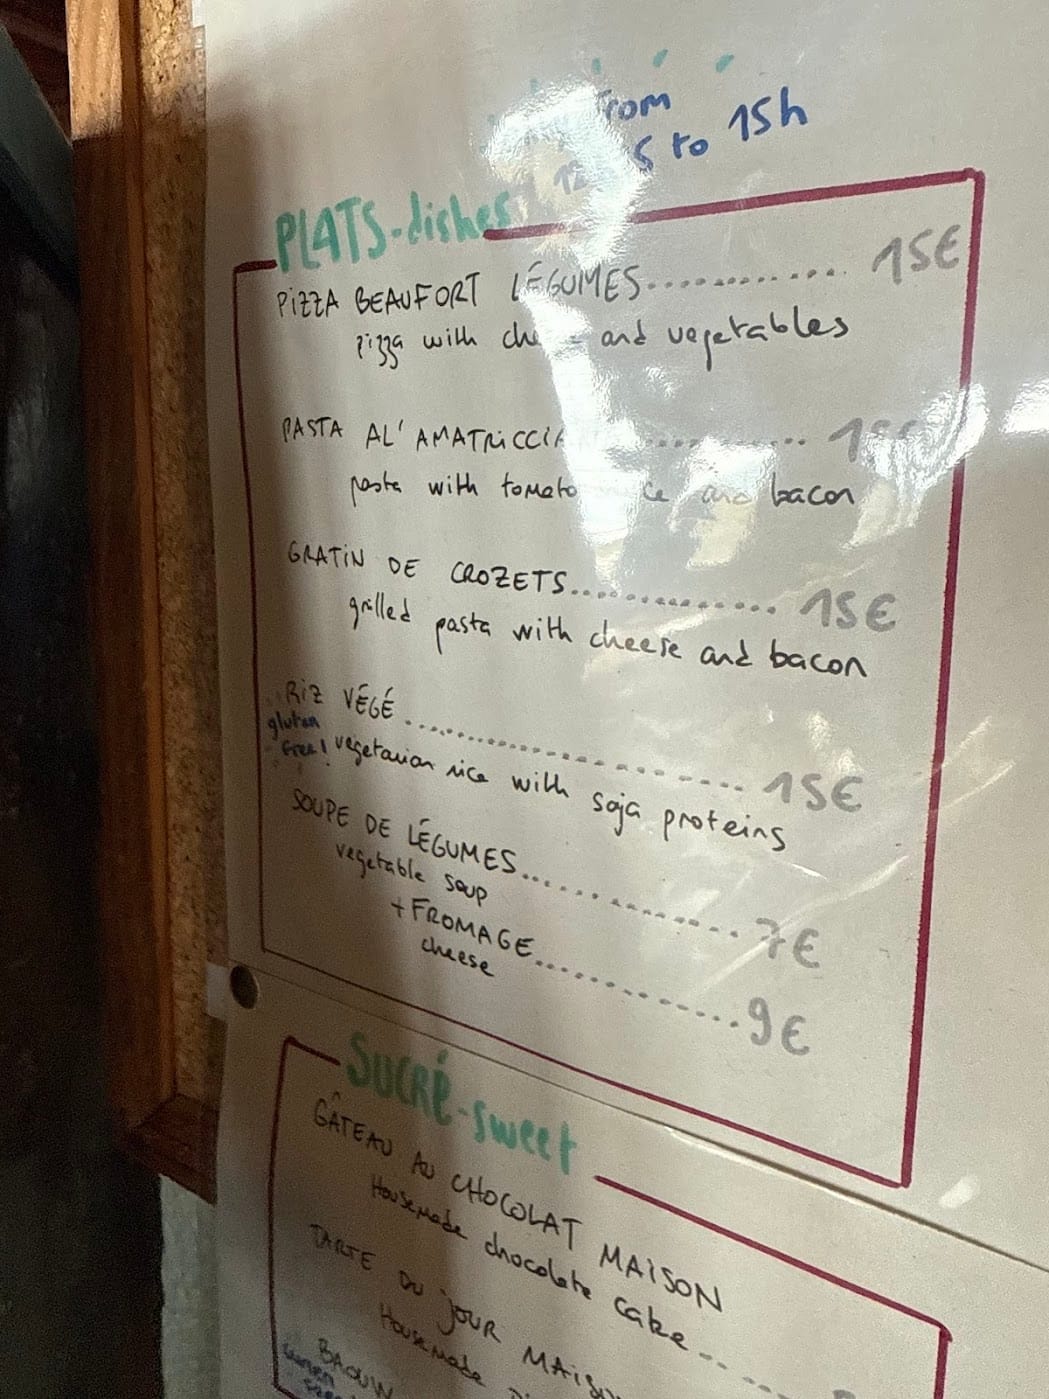 from
to 15h
PLATS-dishes
PIZZA BEAUFORT LÉGUMES............ 15€
pizza with and vegetables
PASTA AL'
pasta with tomato and bacon
GRATIN DE CROZETS............... 15€
grilled pasta with cheese and bacon
RIZ VÉGÉ........................ 15€
gluten free! vegetarian rice with soja proteins
SOUPE DE LÉGUMES............... 7€
vegetable soup
+ FROMAGE............... 9€
cheese
SUCRÉ-sweet
GÂTEAU AU CHOCOLAT MAISON
Housemade chocolate cake...
TARTE DU JOUR MAISON
Housemade